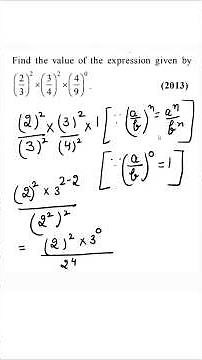 Find the value of the expression given by
(2/3)² × (3/4)² × (4/9)⁰. (2013)
(2)²/(3)² × (3)²/(4)² × 1 [∵ (a/b)ⁿ = aⁿ/bⁿ]
[∵ (a/b)⁰ = 1]
(2)² × 3²⁻²/(2²)²
= (2)² × 3⁰/2⁴